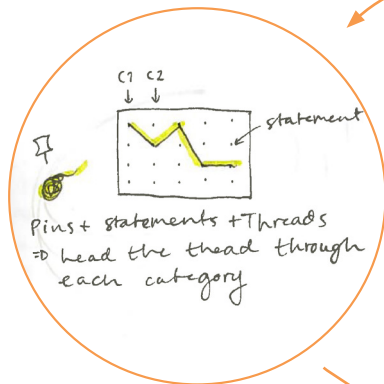 C1 C2
statement
Pins + statements + Threads
⇒ head the thead through
each category